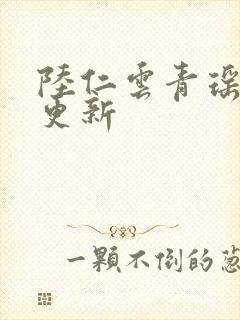 陸仁雲青瑶
更新
一顆不倒的蔥